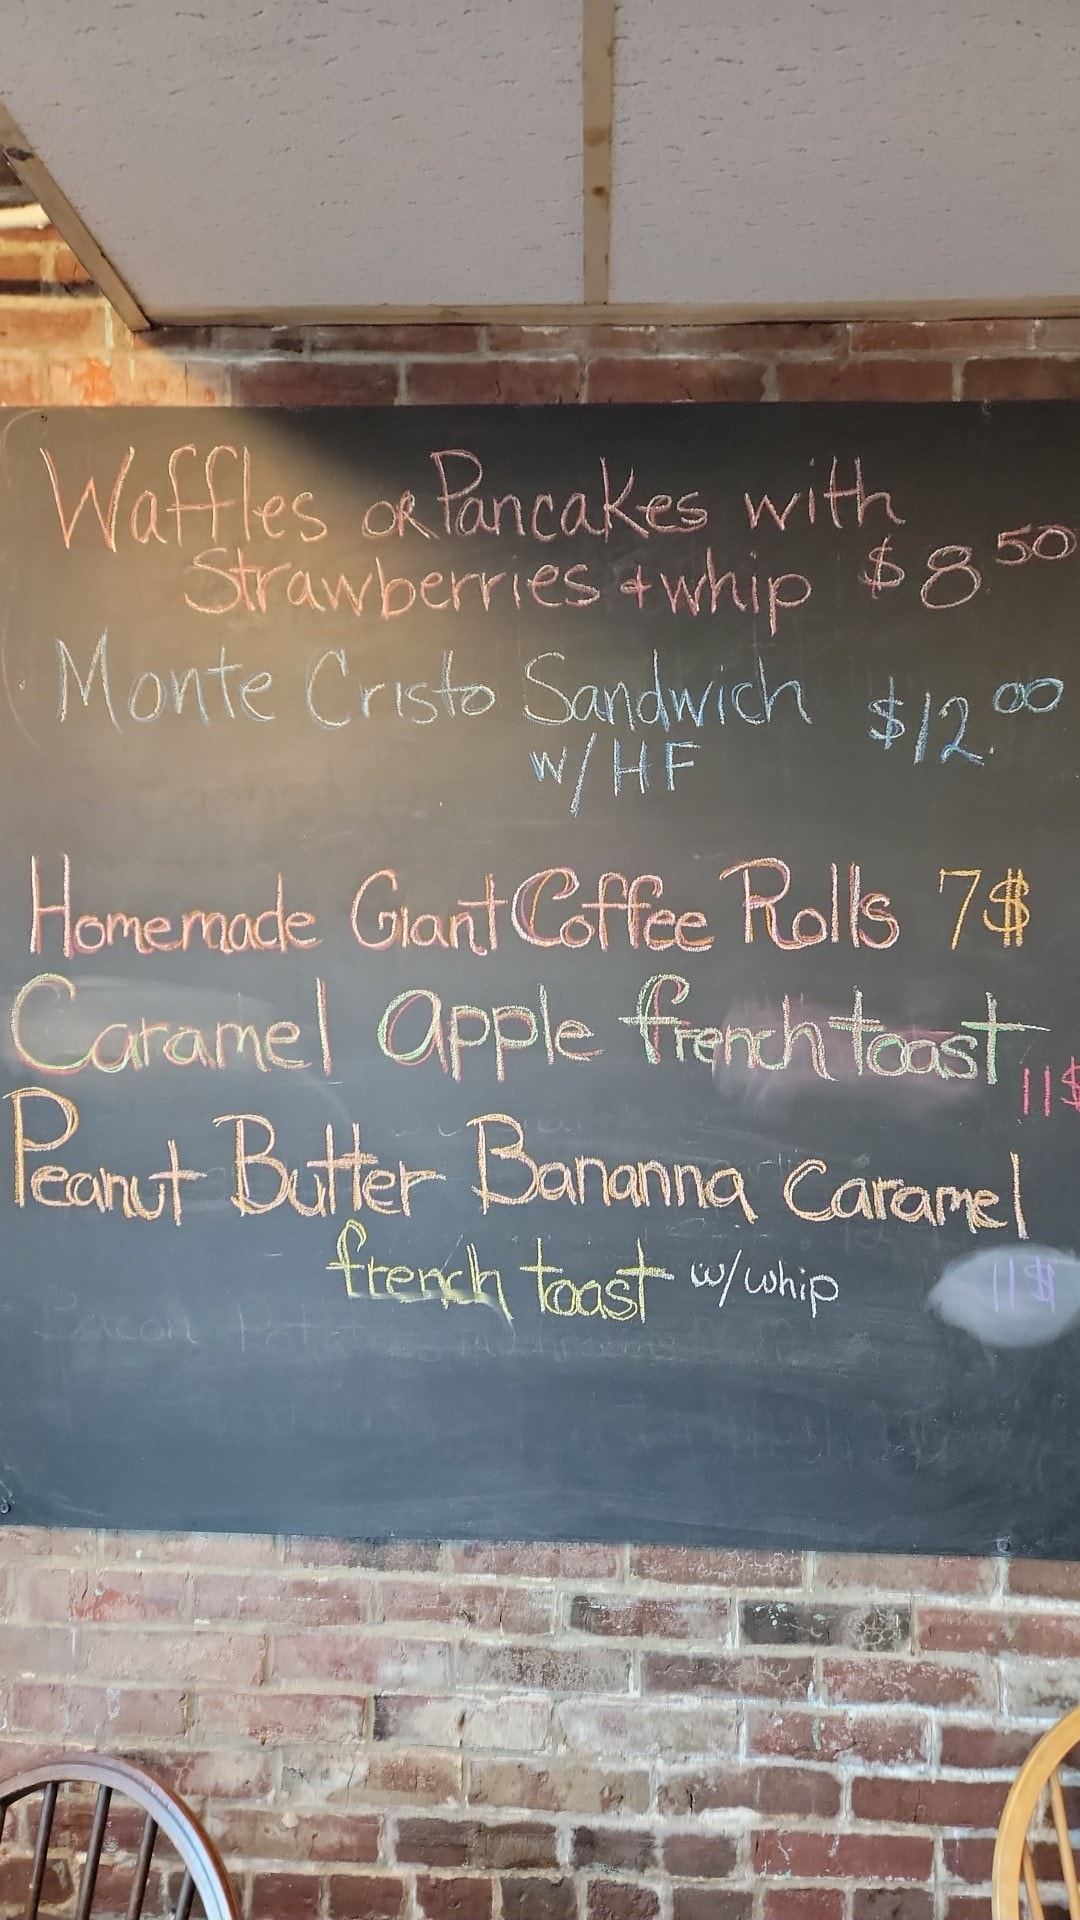 Waffles OR Pancakes with
Strawberries + whip $8.50
Monte Cristo Sandwich $12.00
w/HF
Homemade Giant Coffee Rolls 7$
Caramel apple french toast 11$
Peanut Butter Bananna Caramel
french toast w/whip 11$